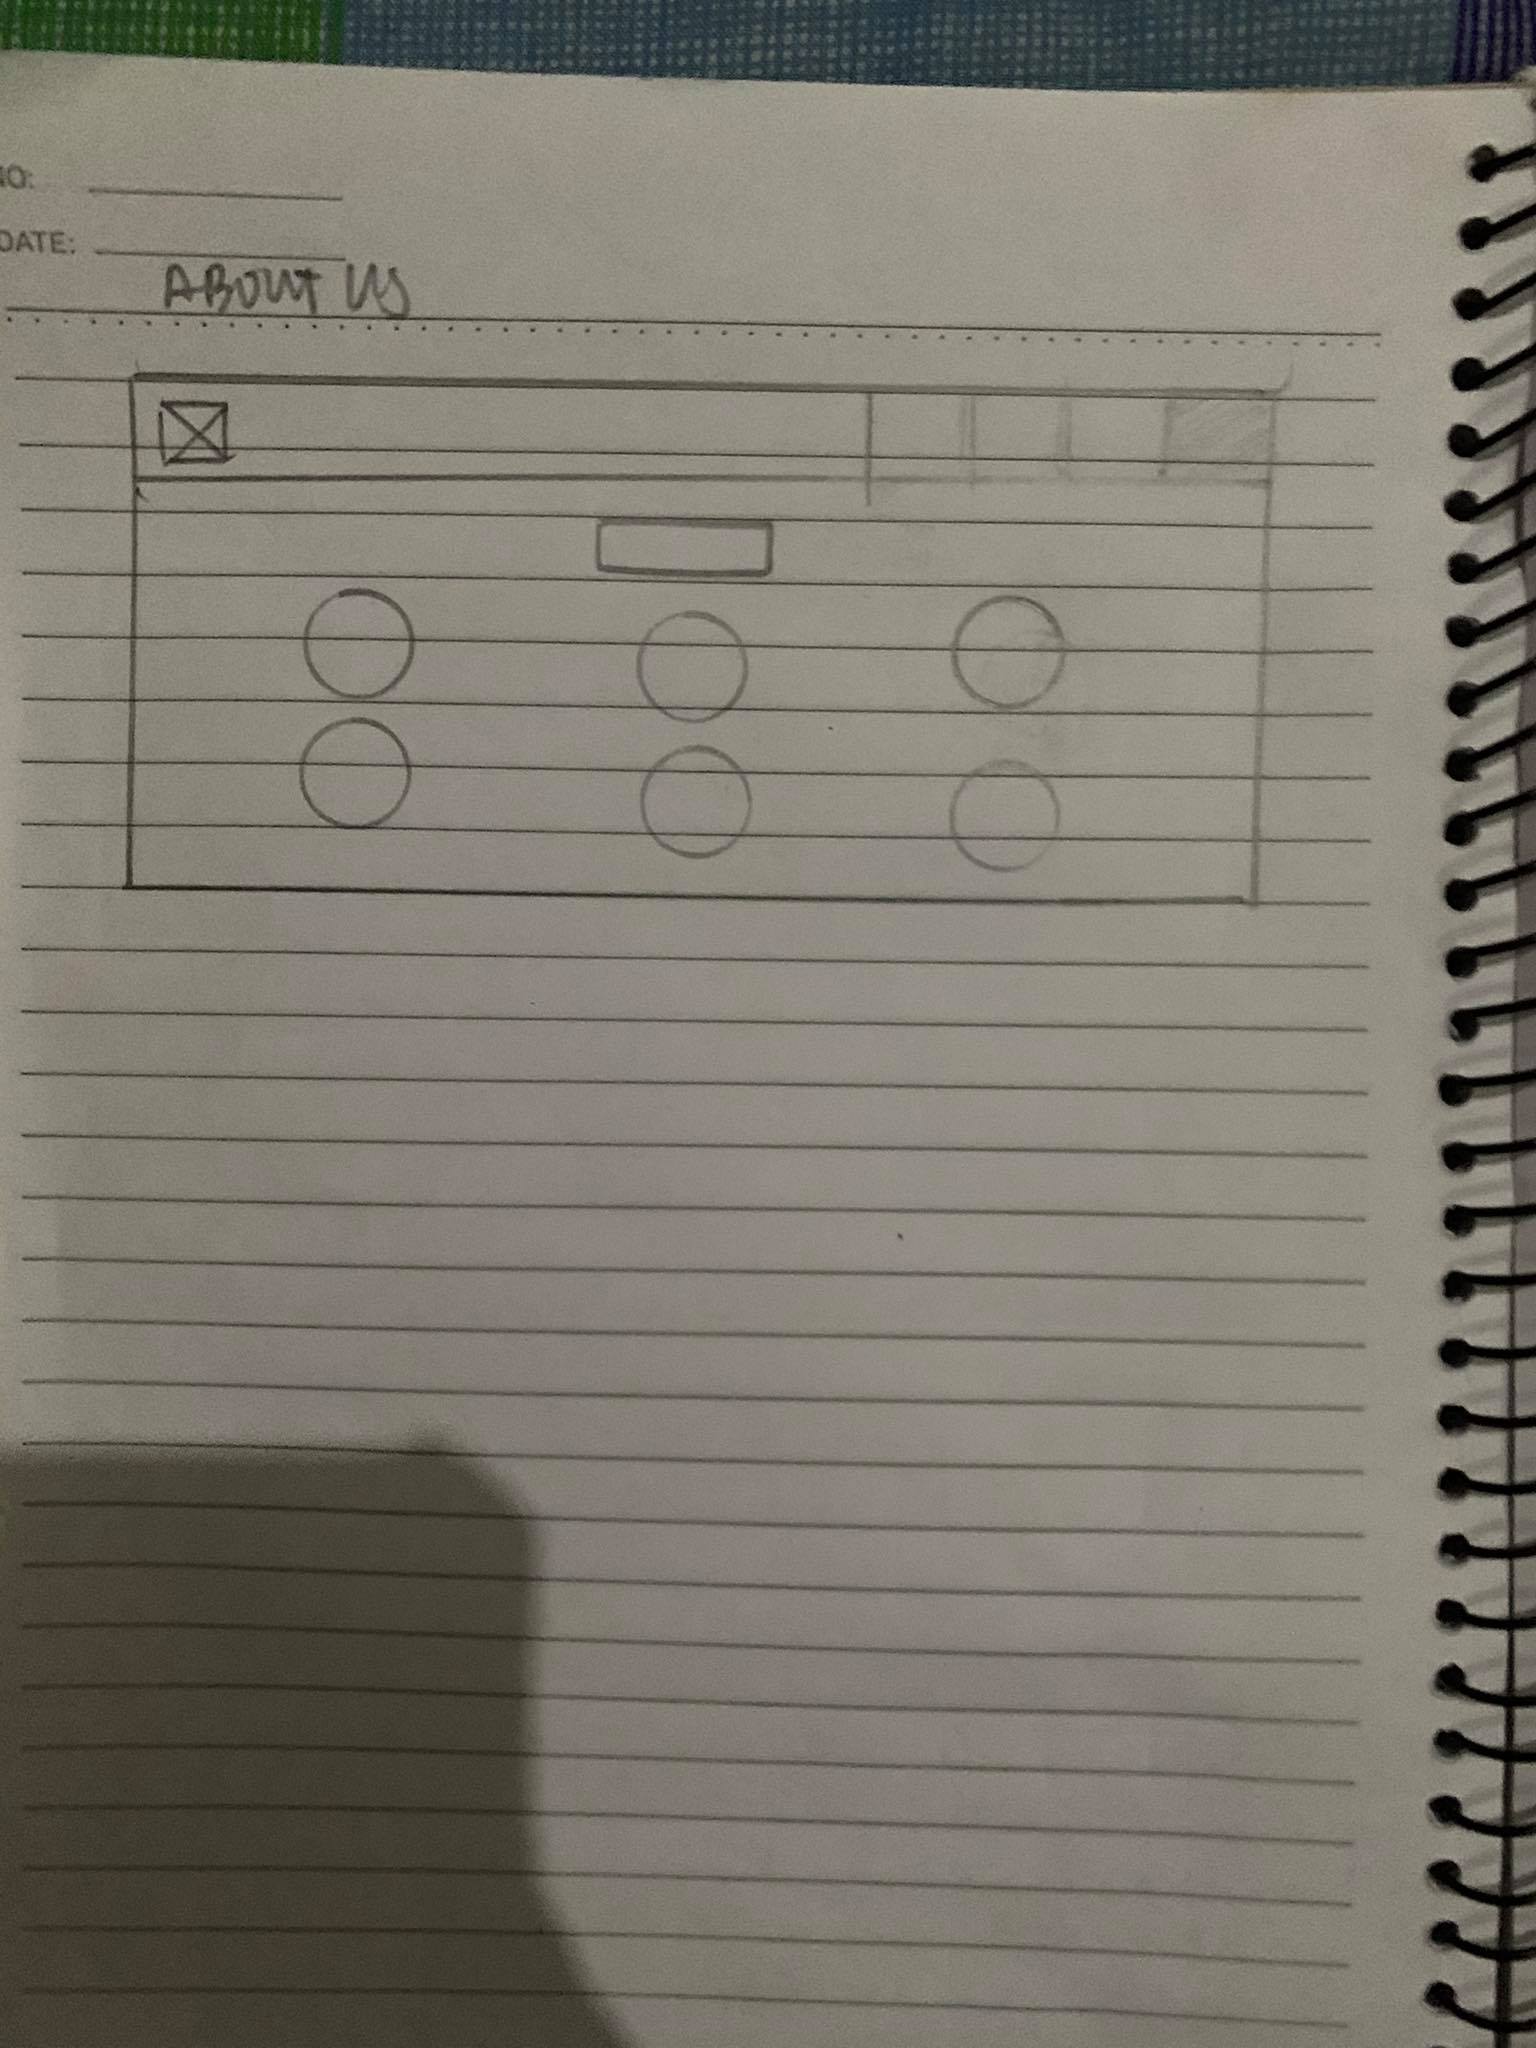 NO:
DATE:
ABOUT US